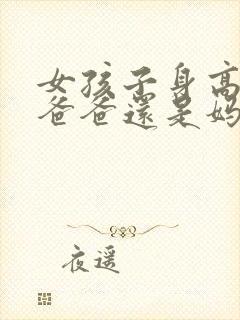 女孩子身高
爸爸還是媽
夜遥